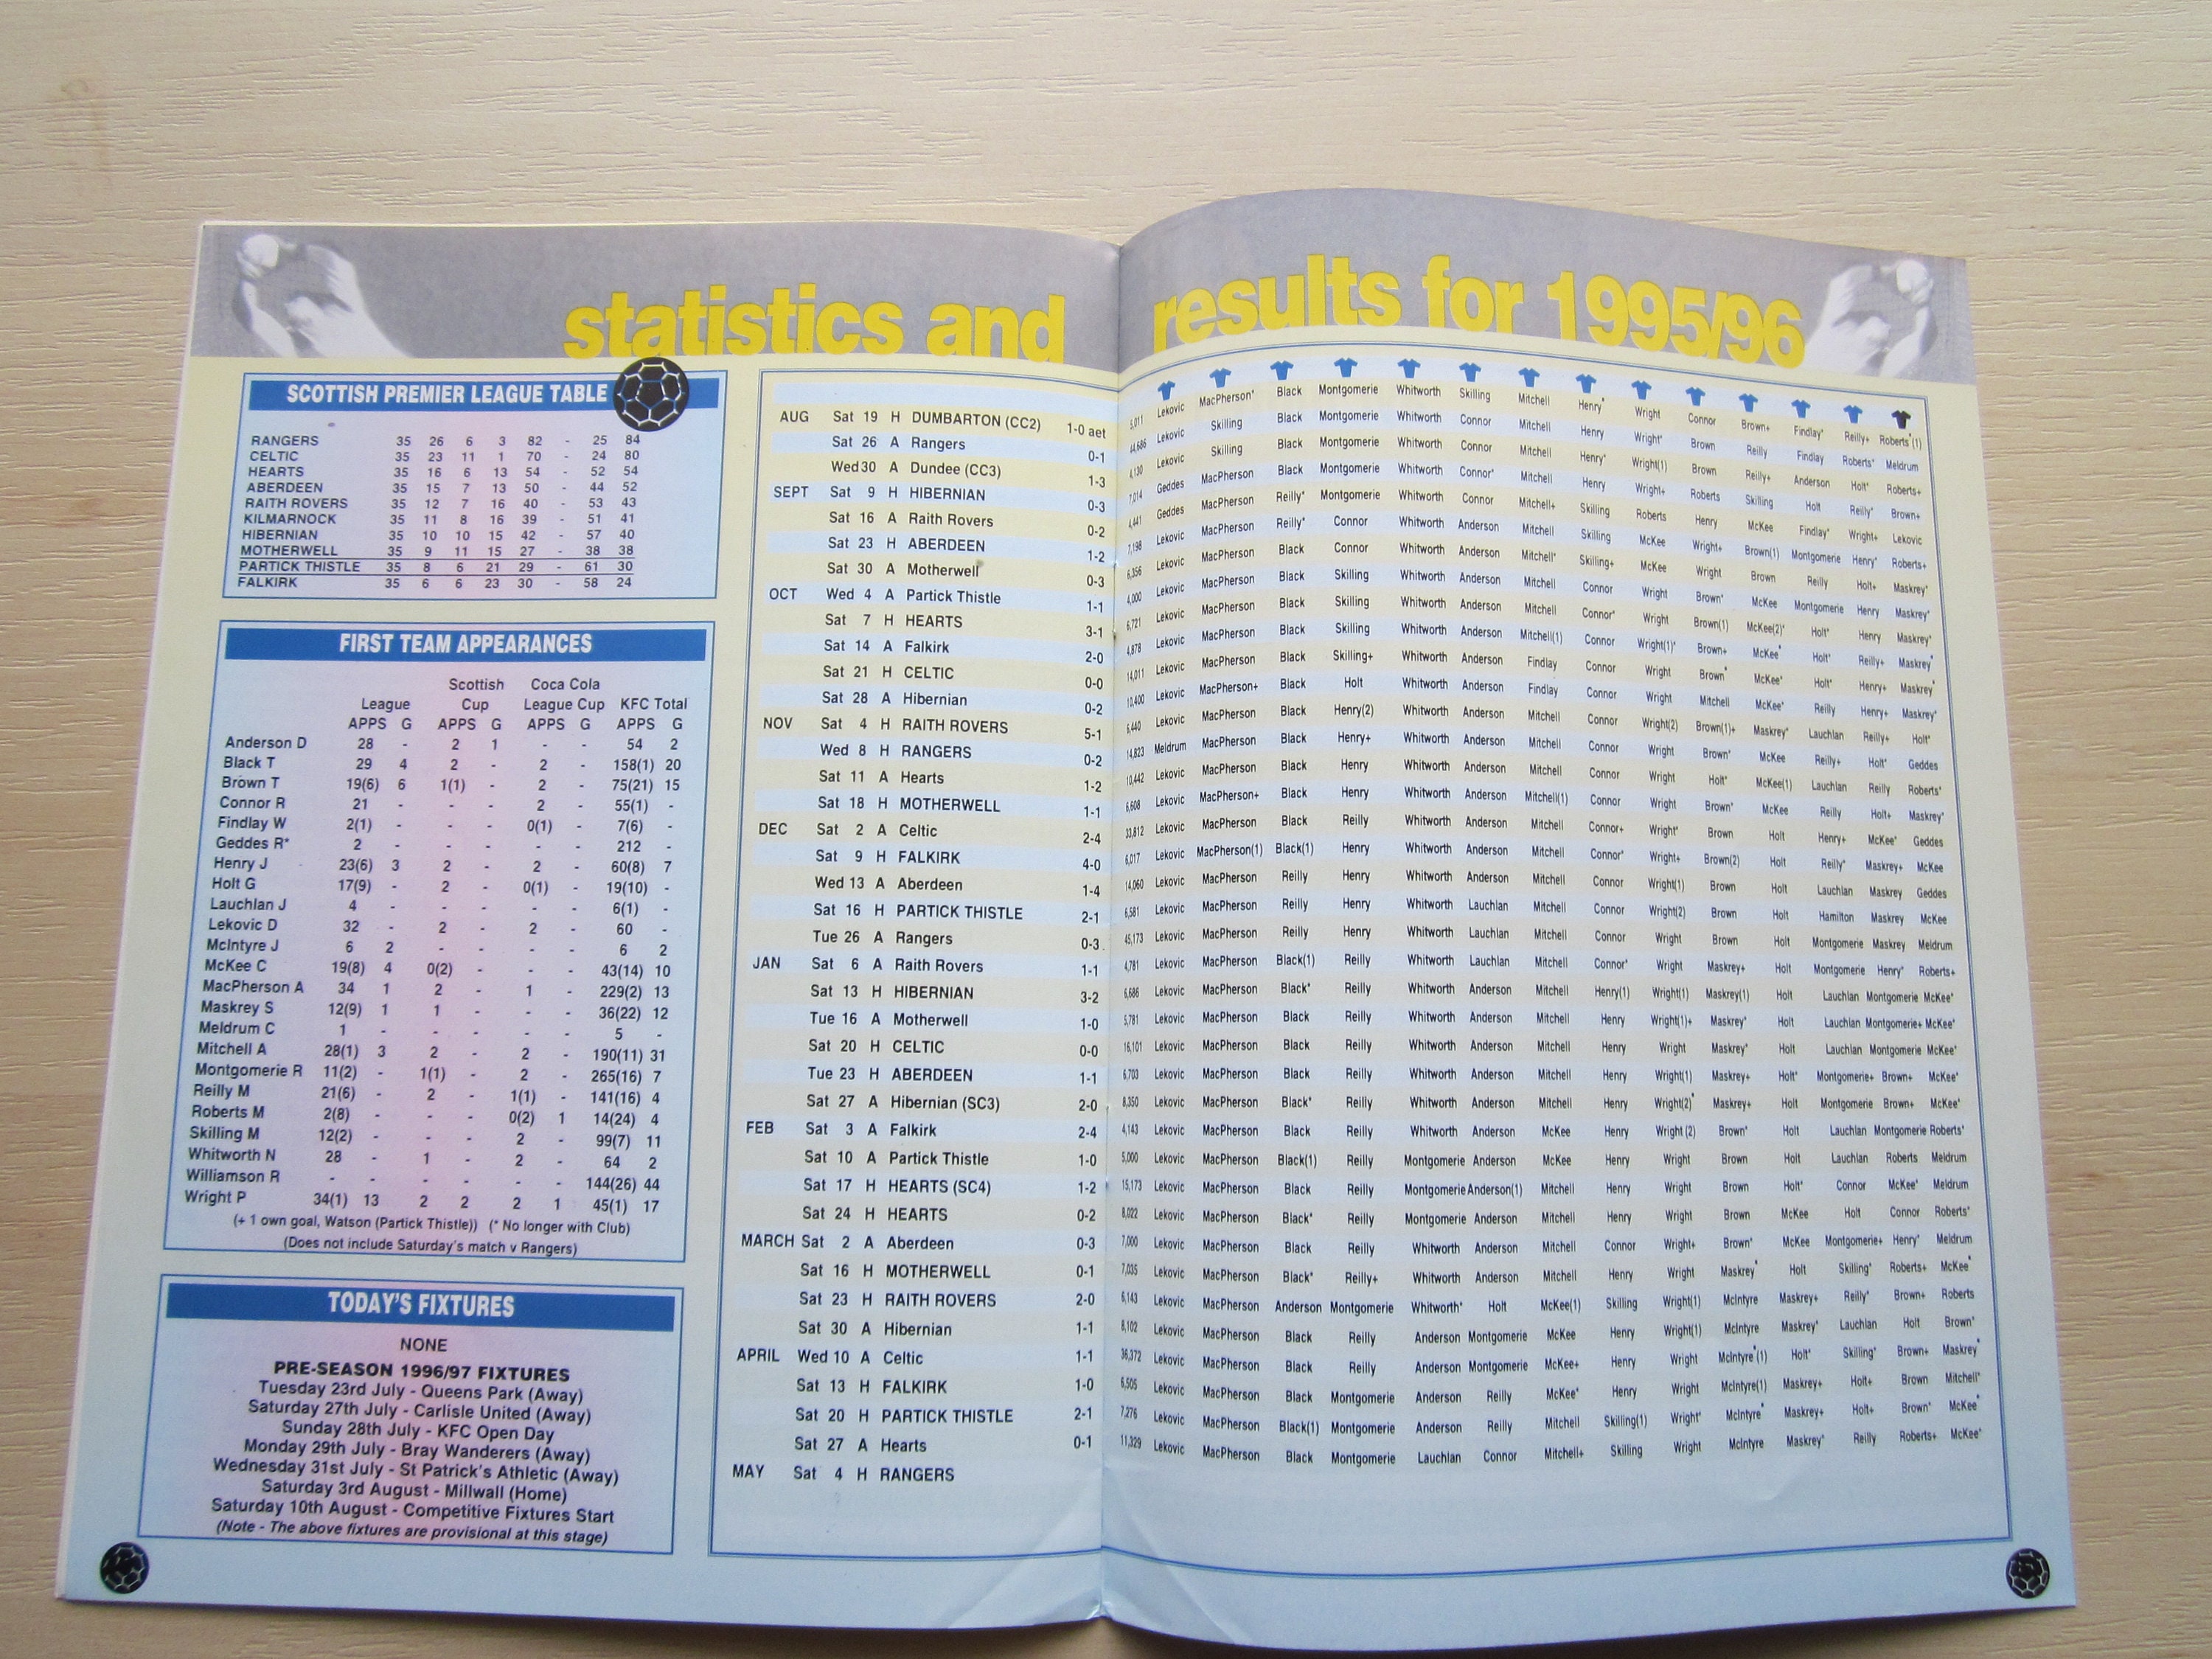 statistics and results for 1995/96
SCOTTISH PREMIER LEAGUE TABLE
RANGERS 35 26 6 3 82 - 25 84
CELTIC 35 23 11 1 70 - 24 80
HEARTS 35 16 6 13 54 - 52 54
ABERDEEN 35 15 7 13 50 - 44 52
RAITH ROVERS 35 12 7 16 40 - 53 43
KILMARNOCK 35 11 8 16 39 - 51 41
HIBERNIAN 35 10 10 15 42 - 57 40
MOTHERWELL 35 9 11 15 27 - 38 38
PARTICK THISTLE 35 8 6 21 29 - 61 30
FALKIRK 35 6 6 23 30 - 58 24
FIRST TEAM APPEARANCES
Scottish Coca Cola
League Cup League Cup KFC Total
APPS G APPS G APPS G APPS G
Anderson D 28 - 2 1 - - 54 2
Black T 29 4 2 - 2 - 158(1) 20
Brown T 19(6) 6 1(1) - 2 - 75(21) 15
Connor R 21 - - - 2 - 55(1) -
Findlay W 2(1) - - - 0(1) - 7(6) -
Geddes R* 2 - - - - - 212 -
Henry J 23(6) 3 2 - 2 - 60(8) 7
Holt G 17(9) - 2 - 0(1) - 19(10) -
Lauchlan J 4 - - - - - 6(1) -
Lekovic D 32 - 2 - 2 - 60 -
McIntyre J 6 2 - - - - 6 2
McKee C 19(8) 4 0(2) - - - 43(14) 10
MacPherson A 34 1 2 - 1 - 229(2) 13
Maskrey S 12(9) 1 1 - - - 36(22) 12
Meldrum C 1 - - - - - 5 -
Mitchell A 28(1) 3 2 - 2 - 190(11) 31
Montgomerie R 11(2) - 1(1) - 2 - 265(16) 7
Reilly M 21(6) - 2 - 1(1) - 141(16) 4
Roberts M 2(8) - - - 0(2) 1 14(24) 4
Skilling M 12(2) - - - 2 - 99(7) 11
Whitworth N 28 - 1 - 2 - 64 2
Williamson R - - - - - - 144(26) 44
Wright P 34(1) 13 2 2 2 1 45(1) 17
(+ 1 own goal, Watson (Partick Thistle)) (* No longer with Club)
(Does not include Saturday's match v Rangers)
TODAY'S FIXTURES
NONE
PRE-SEASON 1996/97 FIXTURES
Tuesday 23rd July - Queens Park (Away)
Saturday 27th July - Carlisle United (Away)
Sunday 28th July - KFC Open Day
Monday 29th July - Bray Wanderers (Away)
Wednesday 31st July - St Patrick's Athletic (Away)
Saturday 3rd August - Millwall (Home)
Saturday 10th August - Competitive Fixtures Start
(Note - The above fixtures are provisional at this stage)
AUG Sat 19 H DUMBARTON (CC2) 1-0 aet 5,011 Lekovic MacPherson* Black Montgomerie Whitworth Skilling Mitchell Henry* Wright Connor Brown+ Findlay* Reilly+ Roberts*(1)
Sat 26 A Rangers 0-1 44,686 Lekovic Skilling Black Montgomerie Whitworth Connor Mitchell Henry Wright* Brown Reilly Findlay Roberts* Meldrum
Wed 30 A Dundee (CC3) 1-3 4,130 Lekovic Skilling Black Montgomerie Whitworth Connor Mitchell Henry* Wright(1) Brown Reilly+ Anderson Holt* Roberts+
SEPT Sat 9 H HIBERNIAN 0-3 7,014 Geddes MacPherson Black Montgomerie Whitworth Connor* Mitchell Henry Wright+ Roberts Skilling Holt Reilly* Brown+
Sat 16 A Raith Rovers 0-2 4,441 Geddes MacPherson Reilly* Montgomerie Whitworth Connor Mitchell+ Skilling Roberts Henry McKee Findlay* Wright+ Lekovic
Sat 23 H ABERDEEN 1-2 7,198 Lekovic MacPherson Reilly* Connor Whitworth Anderson Mitchell Skilling McKee Wright+ Brown(1) Montgomerie Henry* Roberts+
Sat 30 A Motherwell 0-3 6,356 Lekovic MacPherson Black Connor Whitworth Anderson Mitchell* Skilling+ McKee Wright Brown Reilly Holt+ Maskrey*
OCT Wed 4 A Partick Thistle 1-1 4,000 Lekovic MacPherson Black Skilling Whitworth Anderson Mitchell Connor Wright Brown* McKee Montgomerie Henry Maskrey*
Sat 7 H HEARTS 3-1 6,721 Lekovic MacPherson Black Skilling Whitworth Anderson Mitchell Connor* Wright Brown(1) McKee(2)* Holt* Henry Maskrey*
Sat 14 A Falkirk 2-0 4,878 Lekovic MacPherson Black Skilling Whitworth Anderson Mitchell(1) Connor Wright(1)* Brown+ McKee* Holt* Reilly+ Maskrey*
Sat 21 H CELTIC 0-0 14,011 Lekovic MacPherson Black Skilling+ Whitworth Anderson Findlay Connor Wright Brown* McKee* Holt* Henry+ Maskrey*
Sat 28 A Hibernian 0-2 10,400 Lekovic MacPherson+ Black Holt Whitworth Anderson Findlay Connor Wright Mitchell McKee* Reilly Henry+ Maskrey*
NOV Sat 4 H RAITH ROVERS 5-1 6,440 Lekovic MacPherson Black Henry(2) Whitworth Anderson Mitchell Connor Wright(2) Brown(1)+ Maskrey* Lauchlan Reilly+ Holt*
Wed 8 H RANGERS 0-2 14,823 Meldrum MacPherson Black Henry+ Whitworth Anderson Mitchell Connor Wright Brown* McKee Reilly+ Holt* Geddes
Sat 11 A Hearts 1-2 10,442 Lekovic MacPherson Black Henry Whitworth Anderson Mitchell Connor Wright Holt* McKee(1) Lauchlan Reilly Roberts*
Sat 18 H MOTHERWELL 1-1 6,608 Lekovic MacPherson+ Black Henry Whitworth Anderson Mitchell(1) Connor Wright Brown* McKee Reilly Holt+ Maskrey*
DEC Sat 2 A Celtic 2-4 33,812 Lekovic MacPherson Black Reilly Whitworth Anderson Mitchell Connor+ Wright* Brown Holt Henry+ McKee* Geddes
Sat 9 H FALKIRK 4-0 6,017 Lekovic MacPherson(1) Black(1) Henry Whitworth Anderson Mitchell Connor* Wright+ Brown(2) Holt Reilly* Maskrey+ McKee
Wed 13 A Aberdeen 1-4 14,060 Lekovic MacPherson Reilly Henry Whitworth Anderson Mitchell Connor Wright(1) Brown Holt Lauchlan Maskrey Geddes
Sat 16 H PARTICK THISTLE 2-1 6,581 Lekovic MacPherson Reilly Henry Whitworth Lauchlan Mitchell Connor Wright(2) Brown Holt Hamilton Maskrey McKee
Tue 26 A Rangers 0-3 45,173 Lekovic MacPherson Reilly Henry Whitworth Lauchlan Mitchell Connor Wright Brown Holt Montgomerie Maskrey Meldrum
JAN Sat 6 A Raith Rovers 1-1 4,781 Lekovic MacPherson Black(1) Reilly Whitworth Lauchlan Mitchell Connor* Wright Maskrey+ Holt Montgomerie Henry* Roberts+
Sat 13 H HIBERNIAN 3-2 6,686 Lekovic MacPherson Black* Reilly Whitworth Anderson Mitchell Henry(1) Wright(1) Maskrey(1) Holt Lauchlan Montgomerie McKee*
Tue 16 A Motherwell 1-0 5,781 Lekovic MacPherson Black Reilly Whitworth Anderson Mitchell Henry Wright(1)+ Maskrey* Holt Lauchlan Montgomerie+ McKee*
Sat 20 H CELTIC 0-0 16,101 Lekovic MacPherson Black Reilly Whitworth Anderson Mitchell Henry Wright Maskrey* Holt Lauchlan Montgomerie McKee*
Tue 23 H ABERDEEN 1-1 6,703 Lekovic MacPherson Black Reilly Whitworth Anderson Mitchell Henry Wright(1) Maskrey+ Holt* Montgomerie+ Brown+ McKee*
Sat 27 A Hibernian (SC3) 2-0 8,350 Lekovic MacPherson Black* Reilly Whitworth Anderson Mitchell Henry Wright(2)* Maskrey+ Holt Montgomerie Brown+ McKee*
FEB Sat 3 A Falkirk 2-4 4,143 Lekovic MacPherson Black Reilly Whitworth Anderson McKee Henry Wright (2) Brown* Holt Lauchlan Montgomerie Roberts*
Sat 10 A Partick Thistle 1-0 5,000 Lekovic MacPherson Black(1) Reilly Montgomerie Anderson McKee Henry Wright Brown Holt Lauchlan Roberts Meldrum
Sat 17 H HEARTS (SC4) 1-2 15,173 Lekovic MacPherson Black Reilly Montgomerie Anderson(1) Mitchell Henry Wright Brown Holt* Connor McKee* Meldrum
Sat 24 H HEARTS 0-2 8,022 Lekovic MacPherson Black* Reilly Montgomerie Anderson Mitchell Henry Wright Brown McKee Holt Connor Roberts*
MARCH Sat 2 A Aberdeen 0-3 7,000 Lekovic MacPherson Black Reilly Whitworth Anderson Mitchell Connor Wright+ Brown* McKee Montgomerie+ Henry* Meldrum
Sat 16 H MOTHERWELL 0-1 7,035 Lekovic MacPherson Black* Reilly+ Whitworth Anderson Mitchell Henry Wright Maskrey* Holt Skilling* Roberts+ McKee*
Sat 23 H RAITH ROVERS 2-0 6,143 Lekovic MacPherson Anderson Montgomerie Whitworth* Holt McKee(1) Skilling Wright(1) McIntyre Maskrey+ Reilly* Brown+ Roberts
Sat 30 A Hibernian 1-1 8,102 Lekovic MacPherson Black Reilly Anderson Montgomerie McKee Henry Wright(1) McIntyre Maskrey* Lauchlan Holt Brown*
APRIL Wed 10 A Celtic 1-1 36,372 Lekovic MacPherson Black Reilly Anderson Montgomerie McKee+ Henry Wright McIntyre*(1) Holt* Skilling* Brown+ Maskrey*
Sat 13 H FALKIRK 1-0 6,505 Lekovic MacPherson Black Montgomerie Anderson Reilly McKee* Henry Wright McIntyre(1) Maskrey+ Holt+ Brown Mitchell*
Sat 20 H PARTICK THISTLE 2-1 7,276 Lekovic MacPherson Black(1) Montgomerie Anderson Reilly Mitchell Skilling(1) Wright* McIntyre* Maskrey+ Holt+ Brown* McKee*
Sat 27 A Hearts 0-1 11,329 Lekovic MacPherson Black Montgomerie Lauchlan Connor Mitchell+ Skilling Wright McIntyre Maskrey* Reilly Roberts+ McKee*
MAY Sat 4 H RANGERS